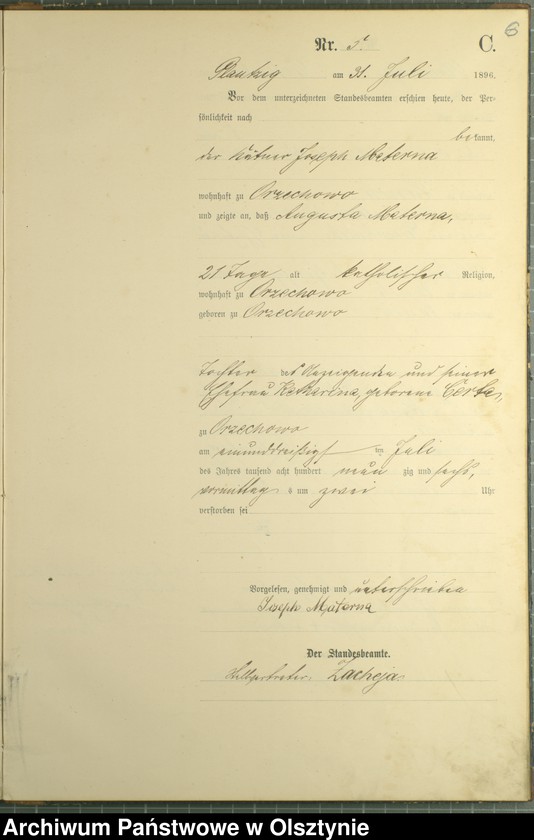 6
Nr. 5. C.
Plautzig am 31. Juli 1896.
Vor dem unterzeichneten Standesbeamten erschien heute, der Per-
sönlichkeit nach
bekannt,
der Kätner Joseph Materna
wohnhaft zu Orzechowo
und zeigte an, daß Augusta Materna,
21 Tage alt katholischer Religion,
wohnhaft zu Orzechowo
geboren zu Orzechowo
Tochter des Anzeigenden und seiner
Ehefrau Katharina, geborene Certa,
zu Orzechowo
am einunddreißigsten Juli
des Jahres tausend acht hundert neun zig und sechs,
vormittags um zwei Uhr
verstorben sei
Vorgelesen, genehmigt und unterschrieben
Joseph Materna
Der Standesbeamte.
Zacheja
Archiwum Państwowe w Olsztynie